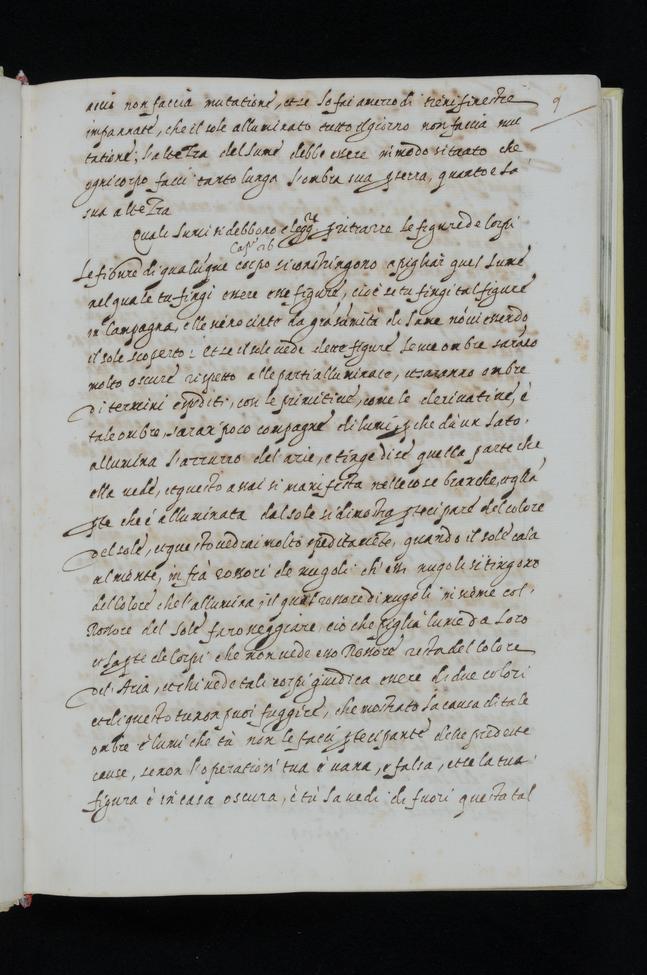 acciò non faccia mutatione, et se lo fai a mezzo dì tieni finestre
9
impannate, che il sole alluminato tutto il giorno non faccia mu
tatione; l'altezza del lume debbe essere in modo situato che
ogni corpo facci tanto lunga l'ombra sua p terra, quanto è la
sua altezza
Quali lumi si debbono eleggre p ritrarre le figure de corpi
Capo 26
Le figure di qualũque corpo si constringono a pigliar quel lume
nel quale tu fingi essere esse figure, cioè se tu fingi tal figure
in Campagna, elle sono cinte da grã sũmità di lume nõ vi essendo
il sole scoperto: Et se il sole vede dette figure le sue ombre sarãno
molto oscure rispetto alle parti alluminate, et saranno ombre
di termini espediti, con le primitive, come le derivative, è
tale ombre, saran poco compagne di lumi, p che da un lato,
allumina l'azzurro del arie, e tinge di se quella parte che
ella vede, et questo assai si manifesta nelle cose bianche, et q̃lla
pte che è alluminata dal sole si dimostra ptecipare del colore
del sole, et questo vedrai molto espeditamẽte, quando il sole cala
al mõnte, in fra rossori de nugoli ch'essi nugoli si tingono
del Colore che l'allumina, il qual rossore di nugoli insieme col,
Rossore del Sole fa rosseggiare ciò che piglia lume da loro
et la pte de corpi che non vede esso Rossore resta del colore
del' Aria, et chi vede tali corpi giudica essere di due colori
et di questo tu non puoi fuggire, che mostrato la causa di tale
ombre è lumi che tù non le facci ptecipante delle predette
cause, se non l'operation' tua è vana, e falsa, et se la tua
figura è in casa oscura, è tù la vedi di fuori questa tal